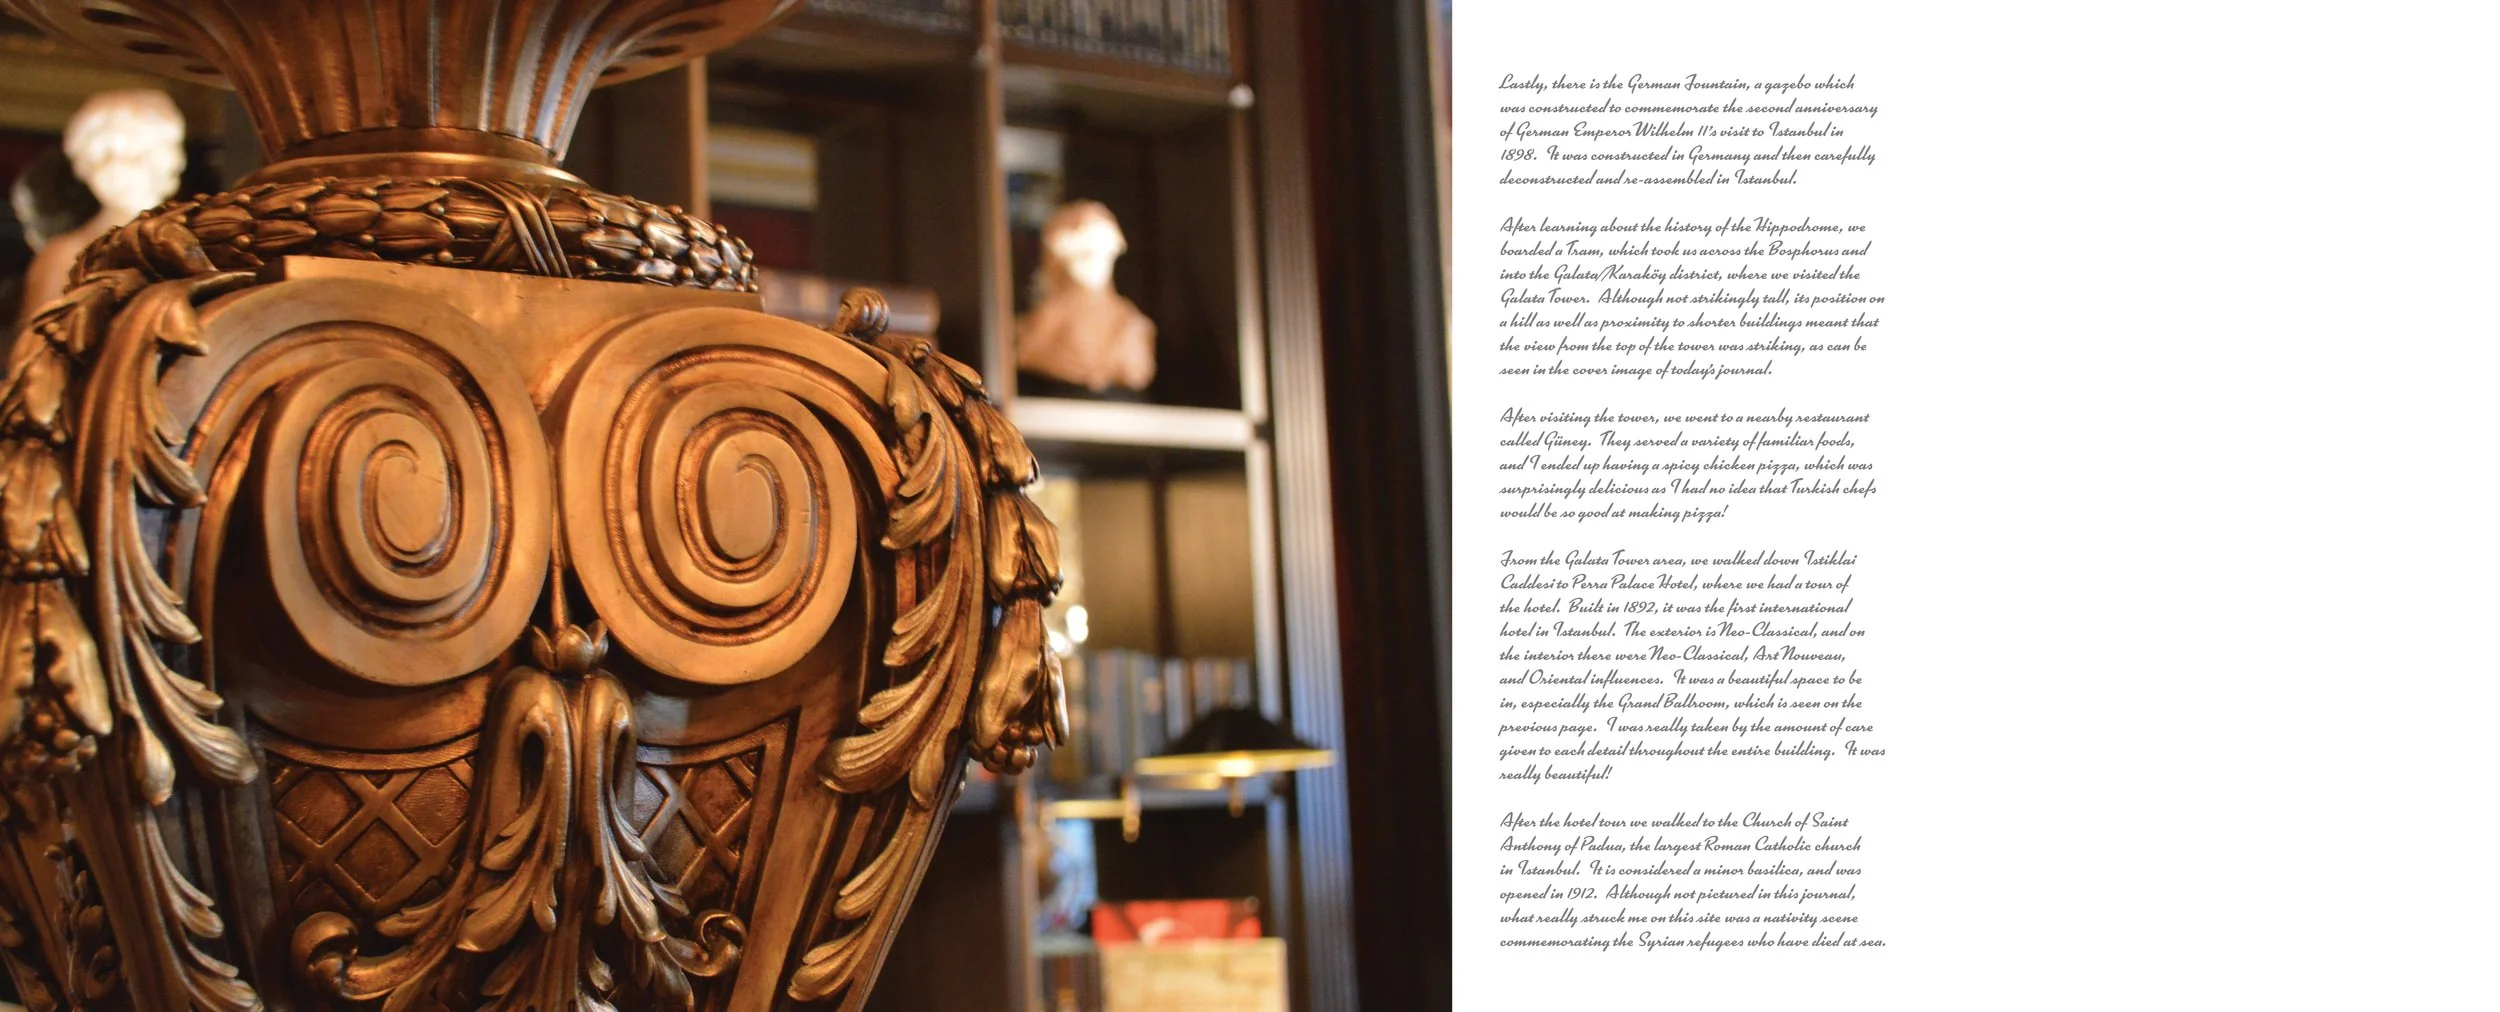 Lastly, there is the German Fountain, a gazebo which
was constructed to commemorate the second anniversary
of German Emperor Wilhelm II's visit to Istanbul in
1898. It was constructed in Germany and then carefully
deconstructed and re-assembled in Istanbul.
After learning about the history of the Hippodrome, we
boarded a Tram, which took us across the Bosphorus and
into the Galata/Karaköy district, where we visited the
Galata Tower. Although not strikingly tall, its position on
a hill as well as proximity to shorter buildings meant that
the view from the top of the tower was striking, as can be
seen in the cover image of today's journal.
After visiting the tower, we went to a nearby restaurant
called Güney. They served a variety of familiar foods,
and I ended up having a spicy chicken pizza, which was
surprisingly delicious as I had no idea that Turkish chefs
would be so good at making pizza!
From the Galata Tower area, we walked down Istiklai
Caddesi to Perra Palace Hotel, where we had a tour of
the hotel. Built in 1892, it was the first international
hotel in Istanbul. The exterior is Neo-Classical, and on
the interior there were Neo-Classical, Art Nouveau,
and Oriental influences. It was a beautiful space to be
in, especially the Grand Ballroom, which is seen on the
previous page. I was really taken by the amount of care
given to each detail throughout the entire building. It was
really beautiful!
After the hotel tour we walked to the Church of Saint
Anthony of Padua, the largest Roman Catholic church
in Istanbul. It is considered a minor basilica, and was
opened in 1912. Although not pictured in this journal,
what really struck me on this site was a nativity scene
commemorating the Syrian refugees who have died at sea.